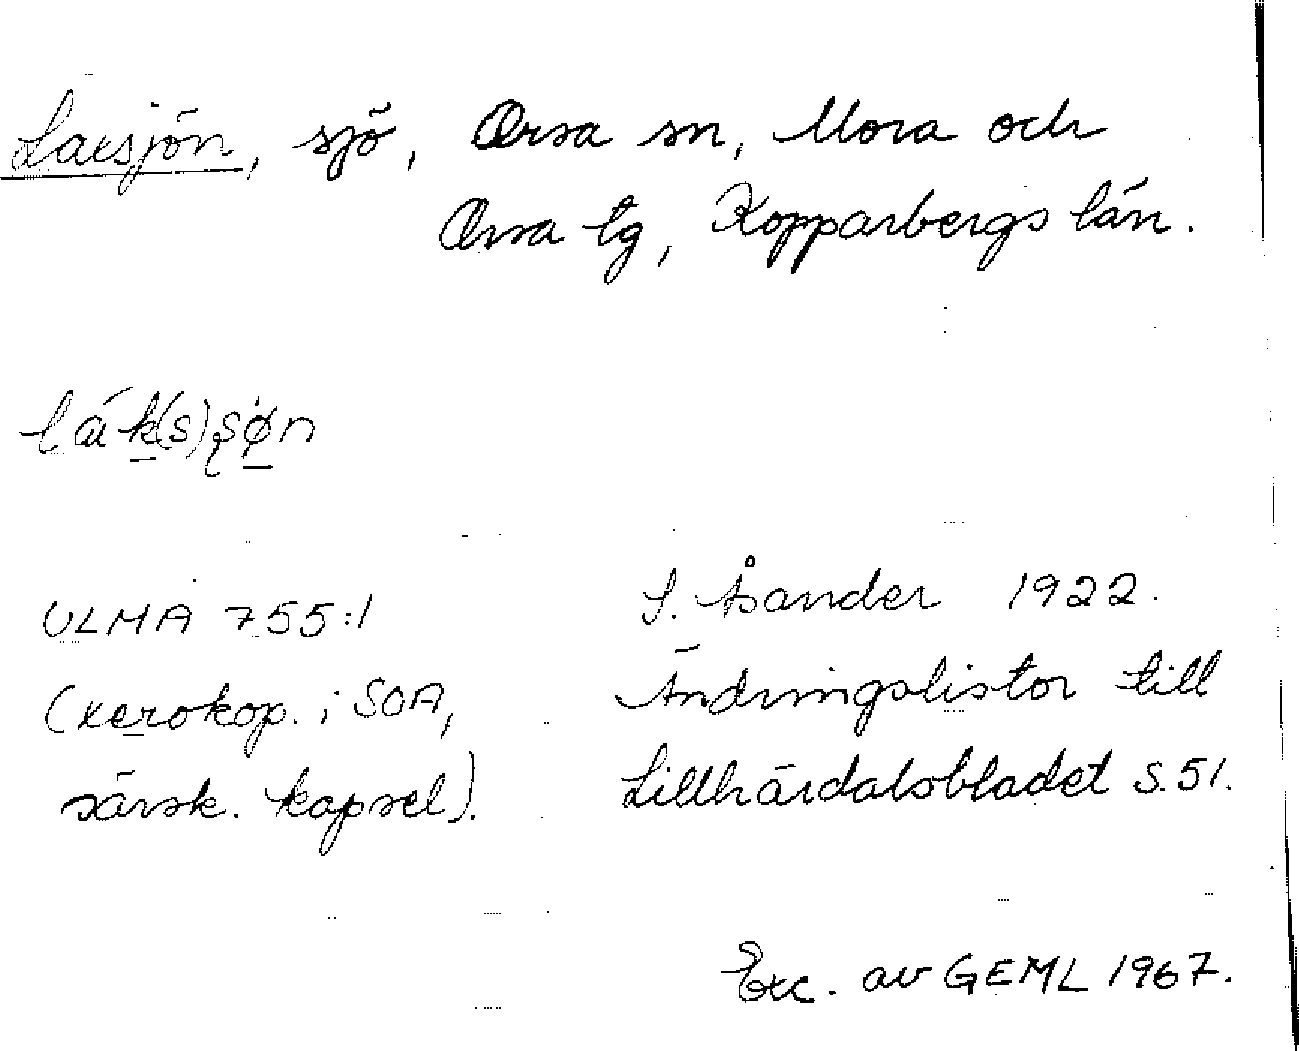 Laxsjön, sjö, Orsa sn, Mora och
Orsa tg, Kopparbergs län.
lák(s)søn
ULMA 755:1
(xerokop. i SOA,
särsk. kapsel).
S. Åsander 1922.
Ändringslistor till
Lillhärdalsbladet s. 51.
Exc. av GEML 1967.